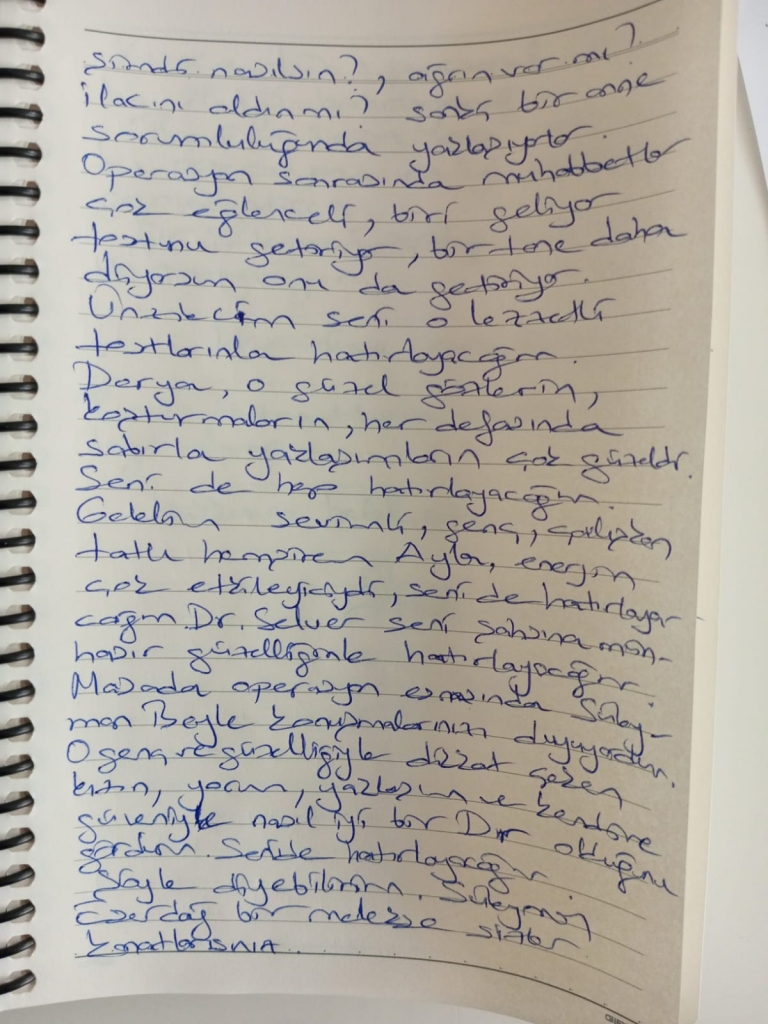 şimdi nasılsın?, ağrın var mı?
ilacını aldın mı? sanki bir anne
sorumluluğunda yaklaşıyor.
Operasyon sonrasında muhabbetler
çok eğlenceli, biri geliyor
tostunu getiriyor, bir tane daha
diyorsun onu da getiriyor.
seni o lezzetli
tostlarınla hatırlayacağım.
Derya, o güzel gözlerin,
koşturmaların, her defasında
sabırla yaklaşımların çok güzeldi.
Seni de hep hatırlayacağım.
Gelelim sevimli, genç, çalışkan
tatlı hemşirem Ayla, enerjin
çok etkileyiciydi, seni de hatırlaya-
cağım Dr. Selver seni şahsına mün-
hasır güzelliğinle hatırlayacağım.
Masada operasyon esnasında Süley-
man Beyle konuşmalarınızı duyuyordum.
O genç ve güzelliğiyle dikkat çeken
kızın, yorum, yaklaşım ve kendine
güveniyle nasıl iyi bir Dr olduğunu
gördüm. Seni de hatırlayacağım.
Şöyle diyebilirim. Süleyman
Özerdağ bir melekse sizler
kanatlarısınız.